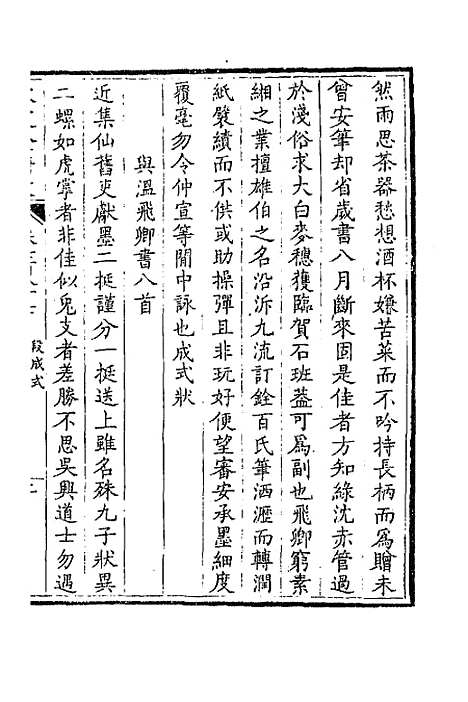 然雨思茶器愁想酒杯嫌苦菜而不吟持長柄而爲贈未
曾安筆却省歲書八月斷來固是佳者方知綠沈赤管過
於淺俗求大白麥穗獲臨賀石班葢可爲副也飛卿窮素
緗之業擅雄伯之名沿泝九流訂銓百氏筆洒瀝而轉潤
紙襞績而不供或助操彈且非玩好便望審安承墨細度
覆毫勿令仲宣等閒中詠也成式狀
與溫飛卿書八首
近集仙舊吏獻墨二挺謹分一挺送上雖名殊九子狀異
二螺如虎掌者非佳似兔支者差勝不思吳興道士勿遇
段成式